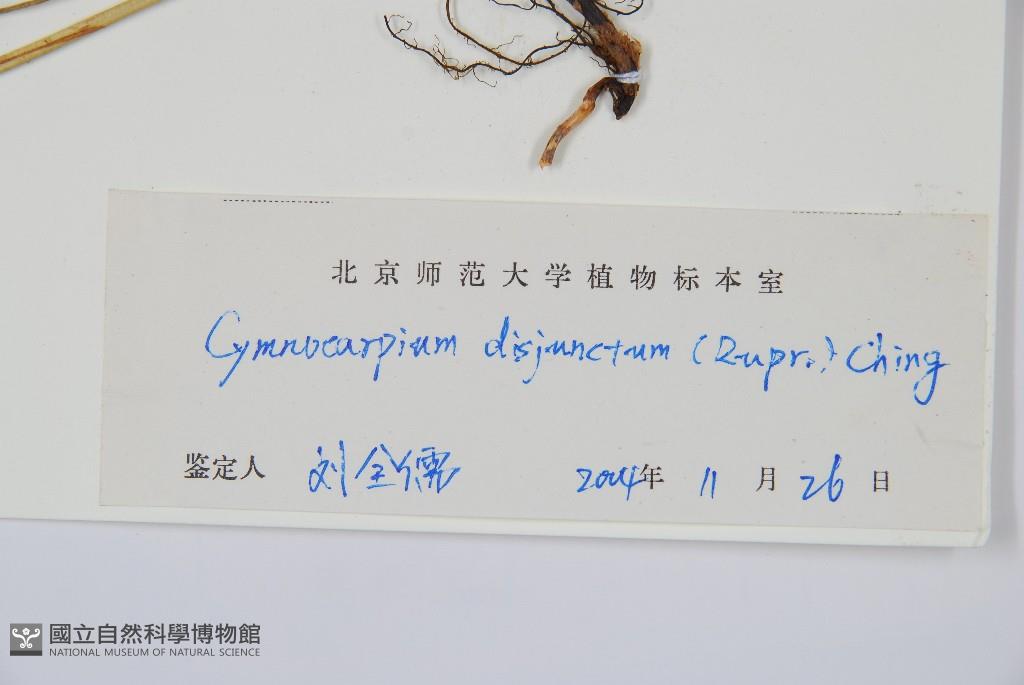 北京师范大学植物标本室
Gymnocarpium disjunctum (Rupr.) Ching
鉴定人 刘全儒 2004年 11月 26日
國立自然科學博物館
NATIONAL MUSEUM OF NATURAL SCIENCE